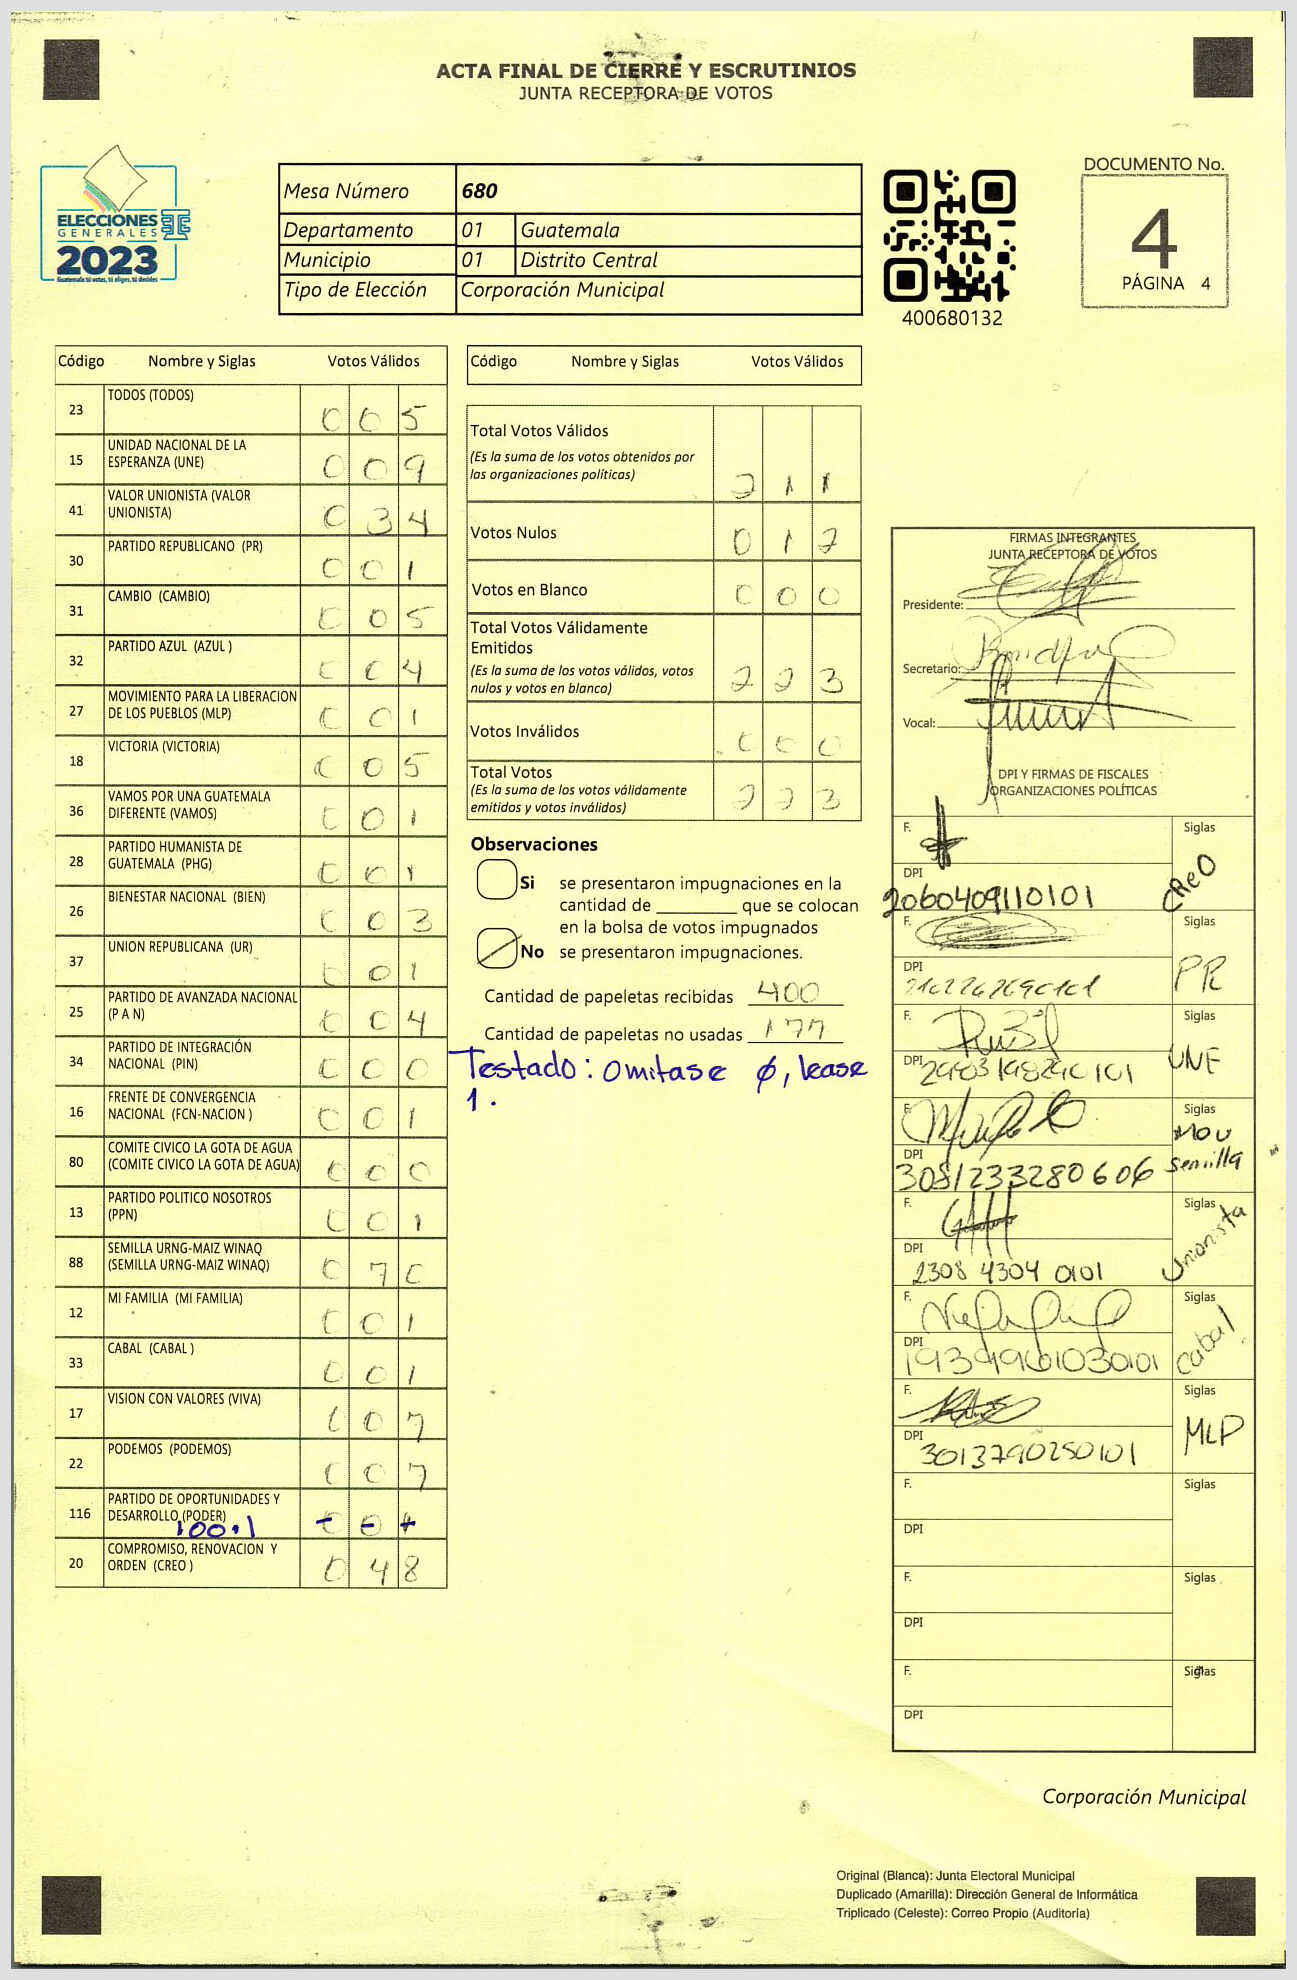 ACTA FINAL DE CIERRE Y ESCRUTINIOS
JUNTA RECEPTORA DE VOTOS
ELECCIONES
GENERALES
2023
Guatemala tú votas, tú eliges, tú decides
Mesa Número 680
Departamento 01 Guatemala
Municipio 01 Distrito Central
Tipo de Elección Corporación Municipal
400680132
DOCUMENTO No.
4
PÁGINA 4
Código Nombre y Siglas Votos Válidos
23 TODOS (TODOS) 0 0 5
15 UNIDAD NACIONAL DE LA ESPERANZA (UNE) 0 0 9
41 VALOR UNIONISTA (VALOR UNIONISTA) 0 3 4
30 PARTIDO REPUBLICANO (PR) 0 0 1
31 CAMBIO (CAMBIO) 0 0 5
32 PARTIDO AZUL (AZUL ) 0 0 4
27 MOVIMIENTO PARA LA LIBERACION DE LOS PUEBLOS (MLP) 0 0 1
18 VICTORIA (VICTORIA) 0 0 5
36 VAMOS POR UNA GUATEMALA DIFERENTE (VAMOS) 0 0 1
28 PARTIDO HUMANISTA DE GUATEMALA (PHG) 0 0 1
26 BIENESTAR NACIONAL (BIEN) 0 0 3
37 UNION REPUBLICANA (UR) 0 0 1
25 PARTIDO DE AVANZADA NACIONAL (P A N) 0 0 4
34 PARTIDO DE INTEGRACIÓN NACIONAL (PIN) 0 0 0
16 FRENTE DE CONVERGENCIA NACIONAL (FCN-NACION ) 0 0 1
80 COMITE CIVICO LA GOTA DE AGUA (COMITE CIVICO LA GOTA DE AGUA) 0 0 0
13 PARTIDO POLITICO NOSOTROS (PPN) 0 0 1
88 SEMILLA URNG-MAIZ WINAQ (SEMILLA URNG-MAIZ WINAQ) 0 7 0
12 MI FAMILIA (MI FAMILIA) 0 0 1
33 CABAL (CABAL ) 0 0 1
17 VISION CON VALORES (VIVA) 0 0 7
22 PODEMOS (PODEMOS) 0 0 7
116 PARTIDO DE OPORTUNIDADES Y DESARROLLO (PODER)
20 COMPROMISO, RENOVACION Y ORDEN (CREO ) 0 4 8
Código Nombre y Siglas Votos Válidos
Total Votos Válidos
(Es la suma de los votos obtenidos por
las organizaciones políticas) 2 1 1
Votos Nulos 0 1 2
Votos en Blanco 0 0 0
Total Votos Válidamente
Emitidos
(Es la suma de los votos válidos, votos
nulos y votos en blanco) 2 2 3
Votos Inválidos 0 0 0
Total Votos
(Es la suma de los votos válidamente
emitidos y votos inválidos) 2 2 3
Observaciones
Si se presentaron impugnaciones en la
cantidad de ________ que se colocan
en la bolsa de votos impugnados
No se presentaron impugnaciones.
Cantidad de papeletas recibidas 400
Cantidad de papeletas no usadas 177
Testado: omitase 0, lease
1.
FIRMAS INTEGRANTES
JUNTA RECEPTORA DE VOTOS
Presidente:
Secretario:
Vocal:
DPI Y FIRMAS DE FISCALES
ORGANIZACIONES POLÍTICAS
F. Siglas
DPI CReO
2060409110101
F. Siglas
DPI PR
F. Siglas
DPI UNE
F. Siglas
DPI Mov Semilla
3081233280606
F. Siglas
DPI Unionista
2308 4304 0101
F. Siglas
DPI Cabal
19394961030101
F. Siglas
DPI MLP
3013790250101
F. Siglas
DPI
F. Siglas
DPI
F. Siglas
DPI
Corporación Municipal
Original (Blanca): Junta Electoral Municipal
Duplicado (Amarilla): Dirección General de Informática
Triplicado (Celeste): Correo Propio (Auditoría)